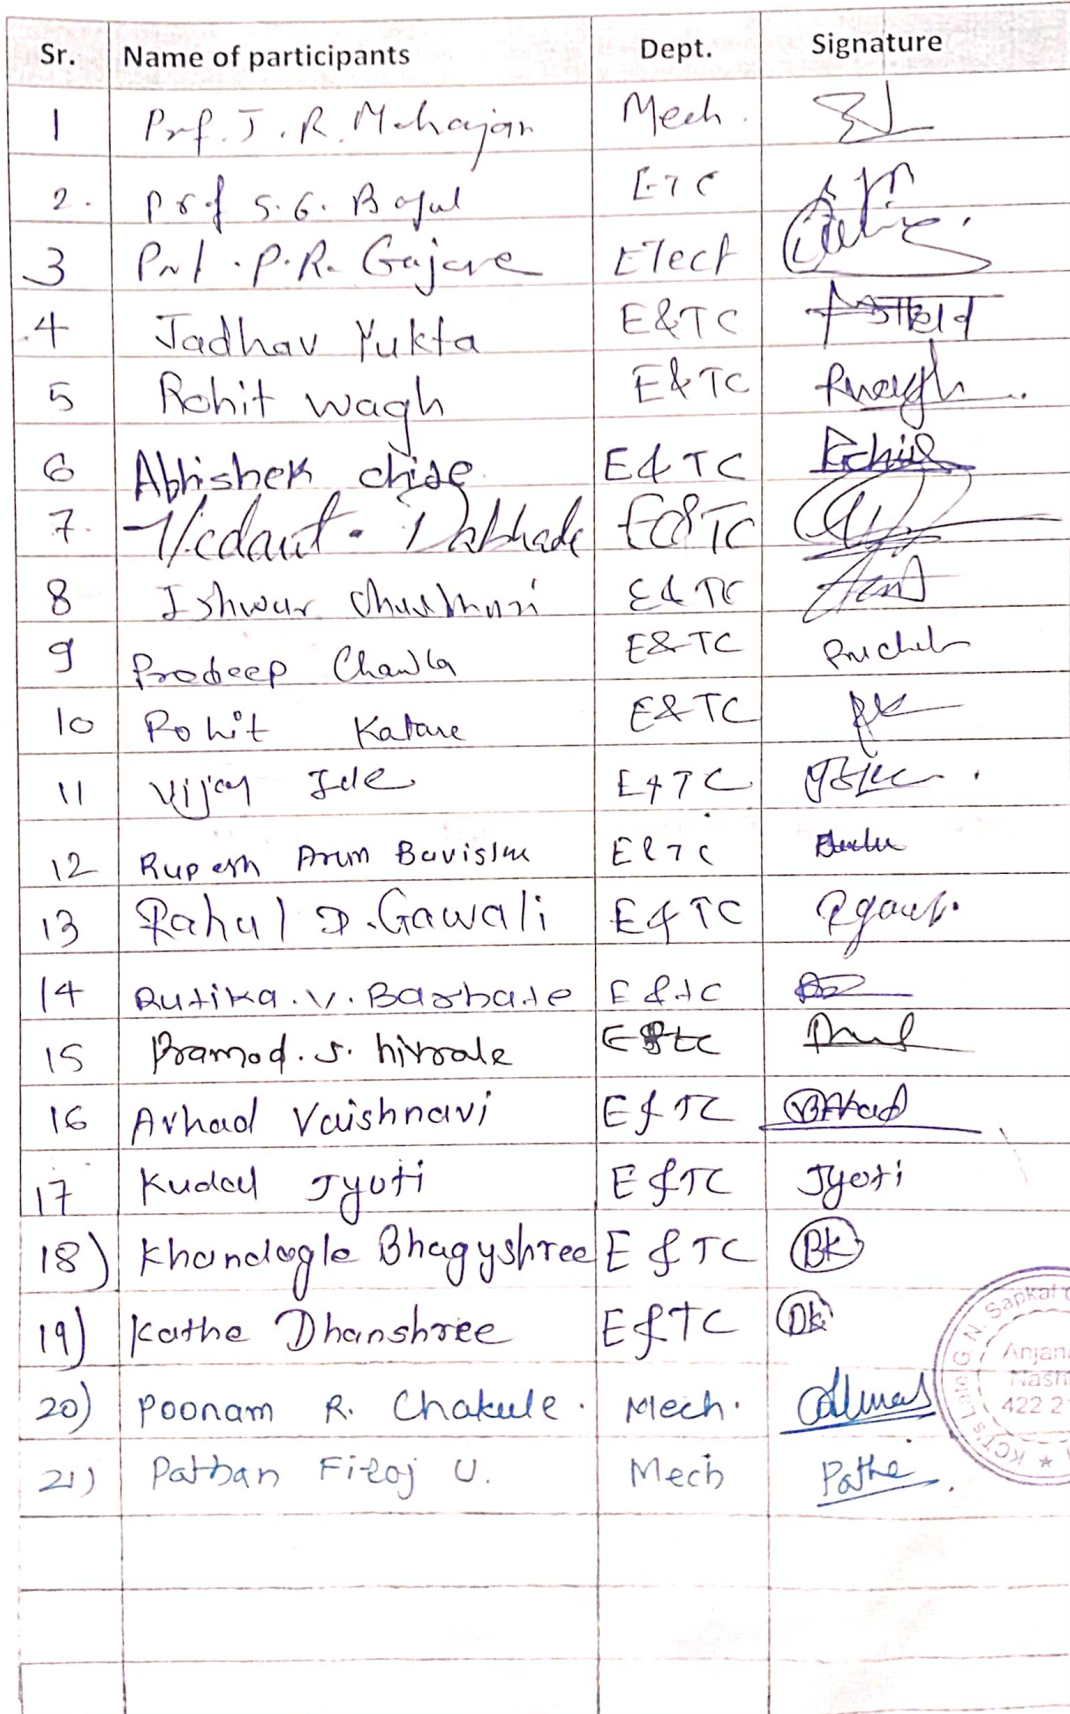 Sr. Name of participants Dept. Signature
1 Prf. J. R. Mahajan Mech.
2. Prof S. G. Bagul ETC
3 Prof. P.R. Gajare Elect
4 Jadhav Yukta E&TC
5 Rohit Wagh E&TC Rwagh
6 Abhishek chise E&TC
7. Vedant. Dabhade E&TC
8 Ishwar E&TC
9 Pradeep Chawla E&TC
10 Rohit Katare E&TC RK
11 Vijay Ide E&TC
12 Rupesh Arun E&TC
13 Rahul D. Gawali E&TC
14 Rutika. V. Barbate E&tc
15 Pramod. S. hivrale E&tc
16 Arhad Vaishnavi E&TC
17 Kudal Jyoti E&TC Jyoti
18) Khandagle Bhagyshree E&TC BK
19) Kathe Dhanshree E&TC Dk
20) Poonam R. Chakule. Mech.
21) Pathan Firoj U. Mech Pathe
G. N. Sapkal
Anjan
Nash
422 2
KCT's Late